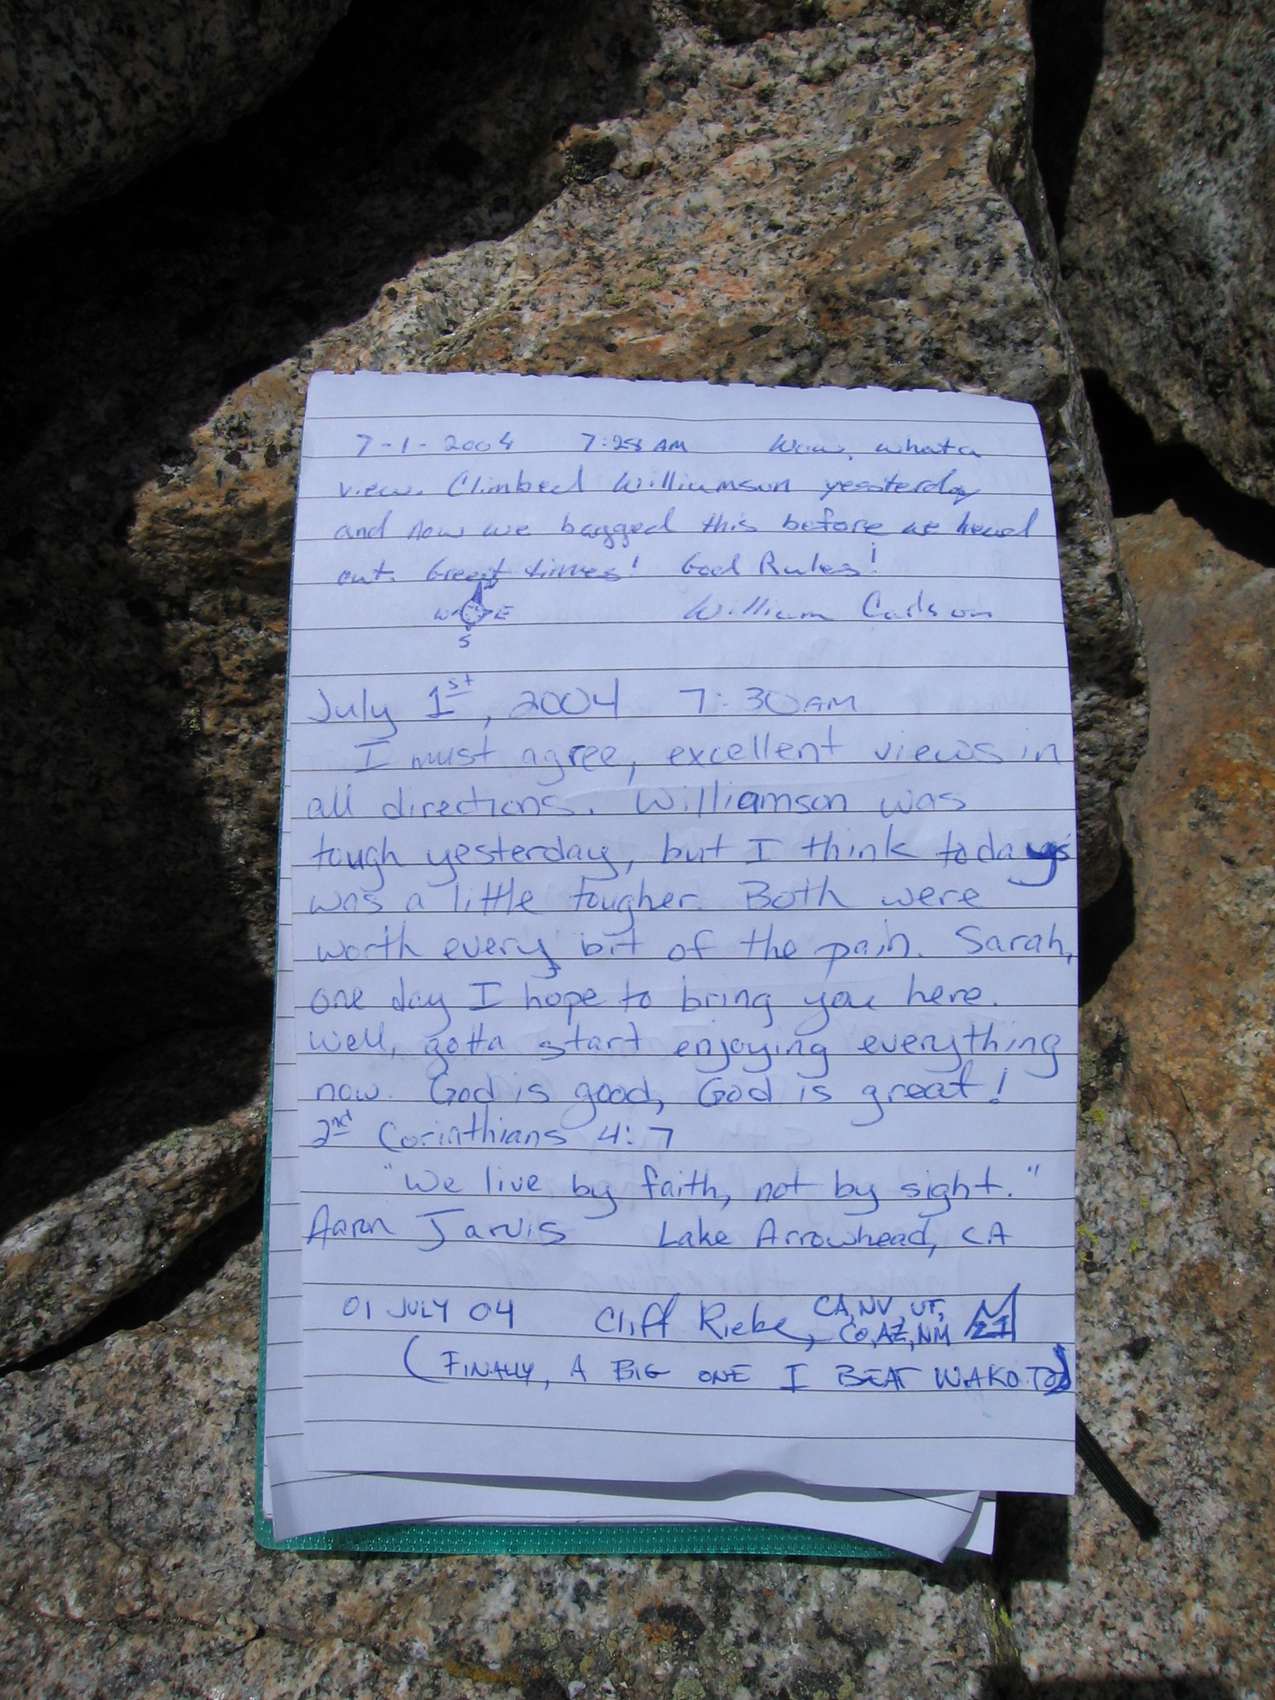 7-1-2004 7:28 AM Wow, what a
view. Climbed Williamson yessterday
and now we bagged this before we head
out. Great times! God Rules!
W E
S
William Carlson
July 1st, 2004 7:30AM
I must agree, excellent views in
all directions. Williamson was
tough yesterday, but I think todays
was a little tougher. Both were
worth every bit of the pain. Sarah,
one day I hope to bring you here.
Well, gotta start enjoying everything
now. God is good, God is great!
2nd Corinthians 4:7
"We live by faith, not by sight."
Aaron Jarvis Lake Arrowhead, CA
01 JULY 04 Cliff Riebe, CA, NV, UT,
CO, AZ, NM
(FINALLY, A BIG ONE I BEAT WAKO TO)